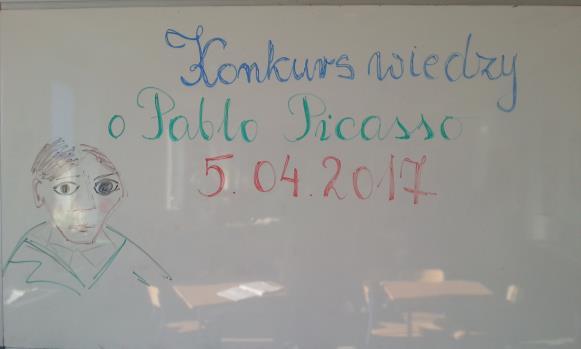 Konkurs wiedzy
o Pablo Picasso
5.04.2017